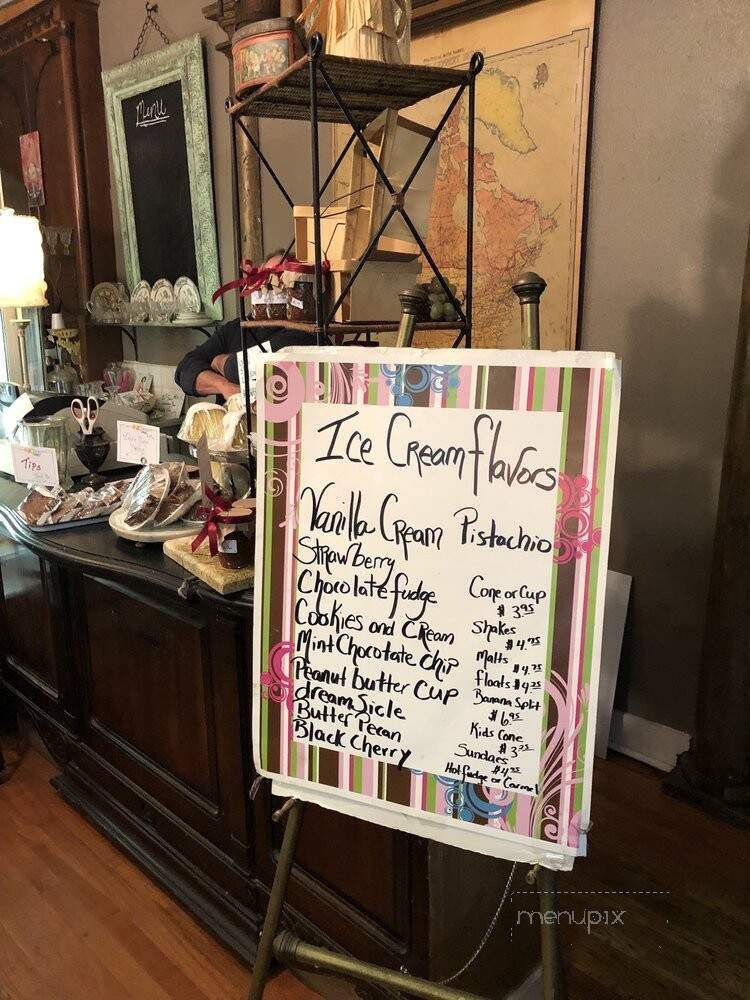 Menu
Tips
Ice Cream flavors
Vanilla Cream
Strawberry
Chocolate fudge
Cookies and Cream
Mint Chocolate Chip
Peanut butter Cup
dream Sicle
Butter Pecan
Black Cherry
Pistachio
Cone or Cup
$3.95
Shakes
$4.75
Malts
$4.75
floats $4.25
Banana Split
$6.95
Kids Cone
$3.25
Sundaes
Hot fudge or Carmel
menupix